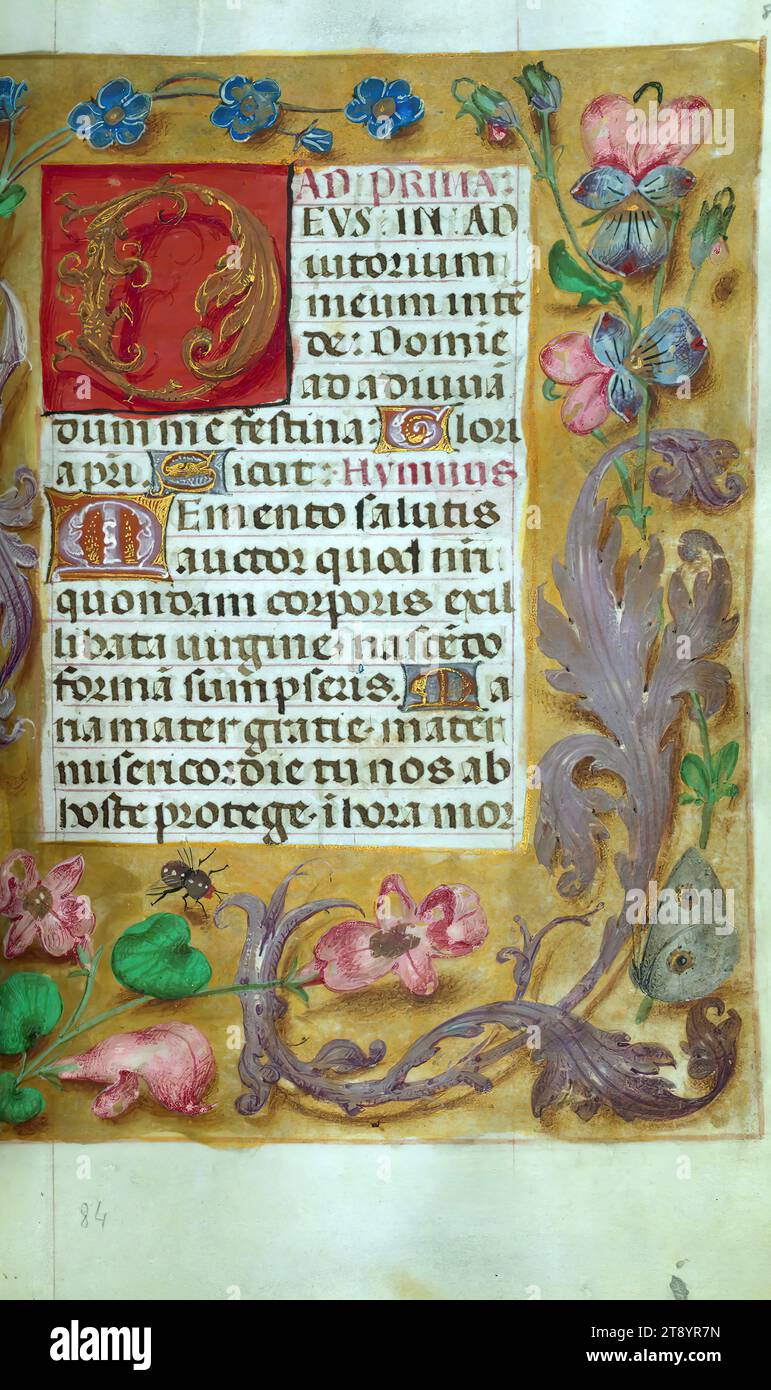 AD PRIMA:
DEVS IN AD
iutorium
meum intē
de: Domie
ad adiuuā
dum me festina: Glori
a pri Sicut: Hymnus
Memento salutis
auctor quod nrī
quondam corporis exil
libata uirgine nascēdo
formā sumpseris. Ma
ria mater gratie mater
misericordie tu nos ab
hoste protege ī hora mor
84
alamy
Image ID: 2T8YR7N
www.alamy.com